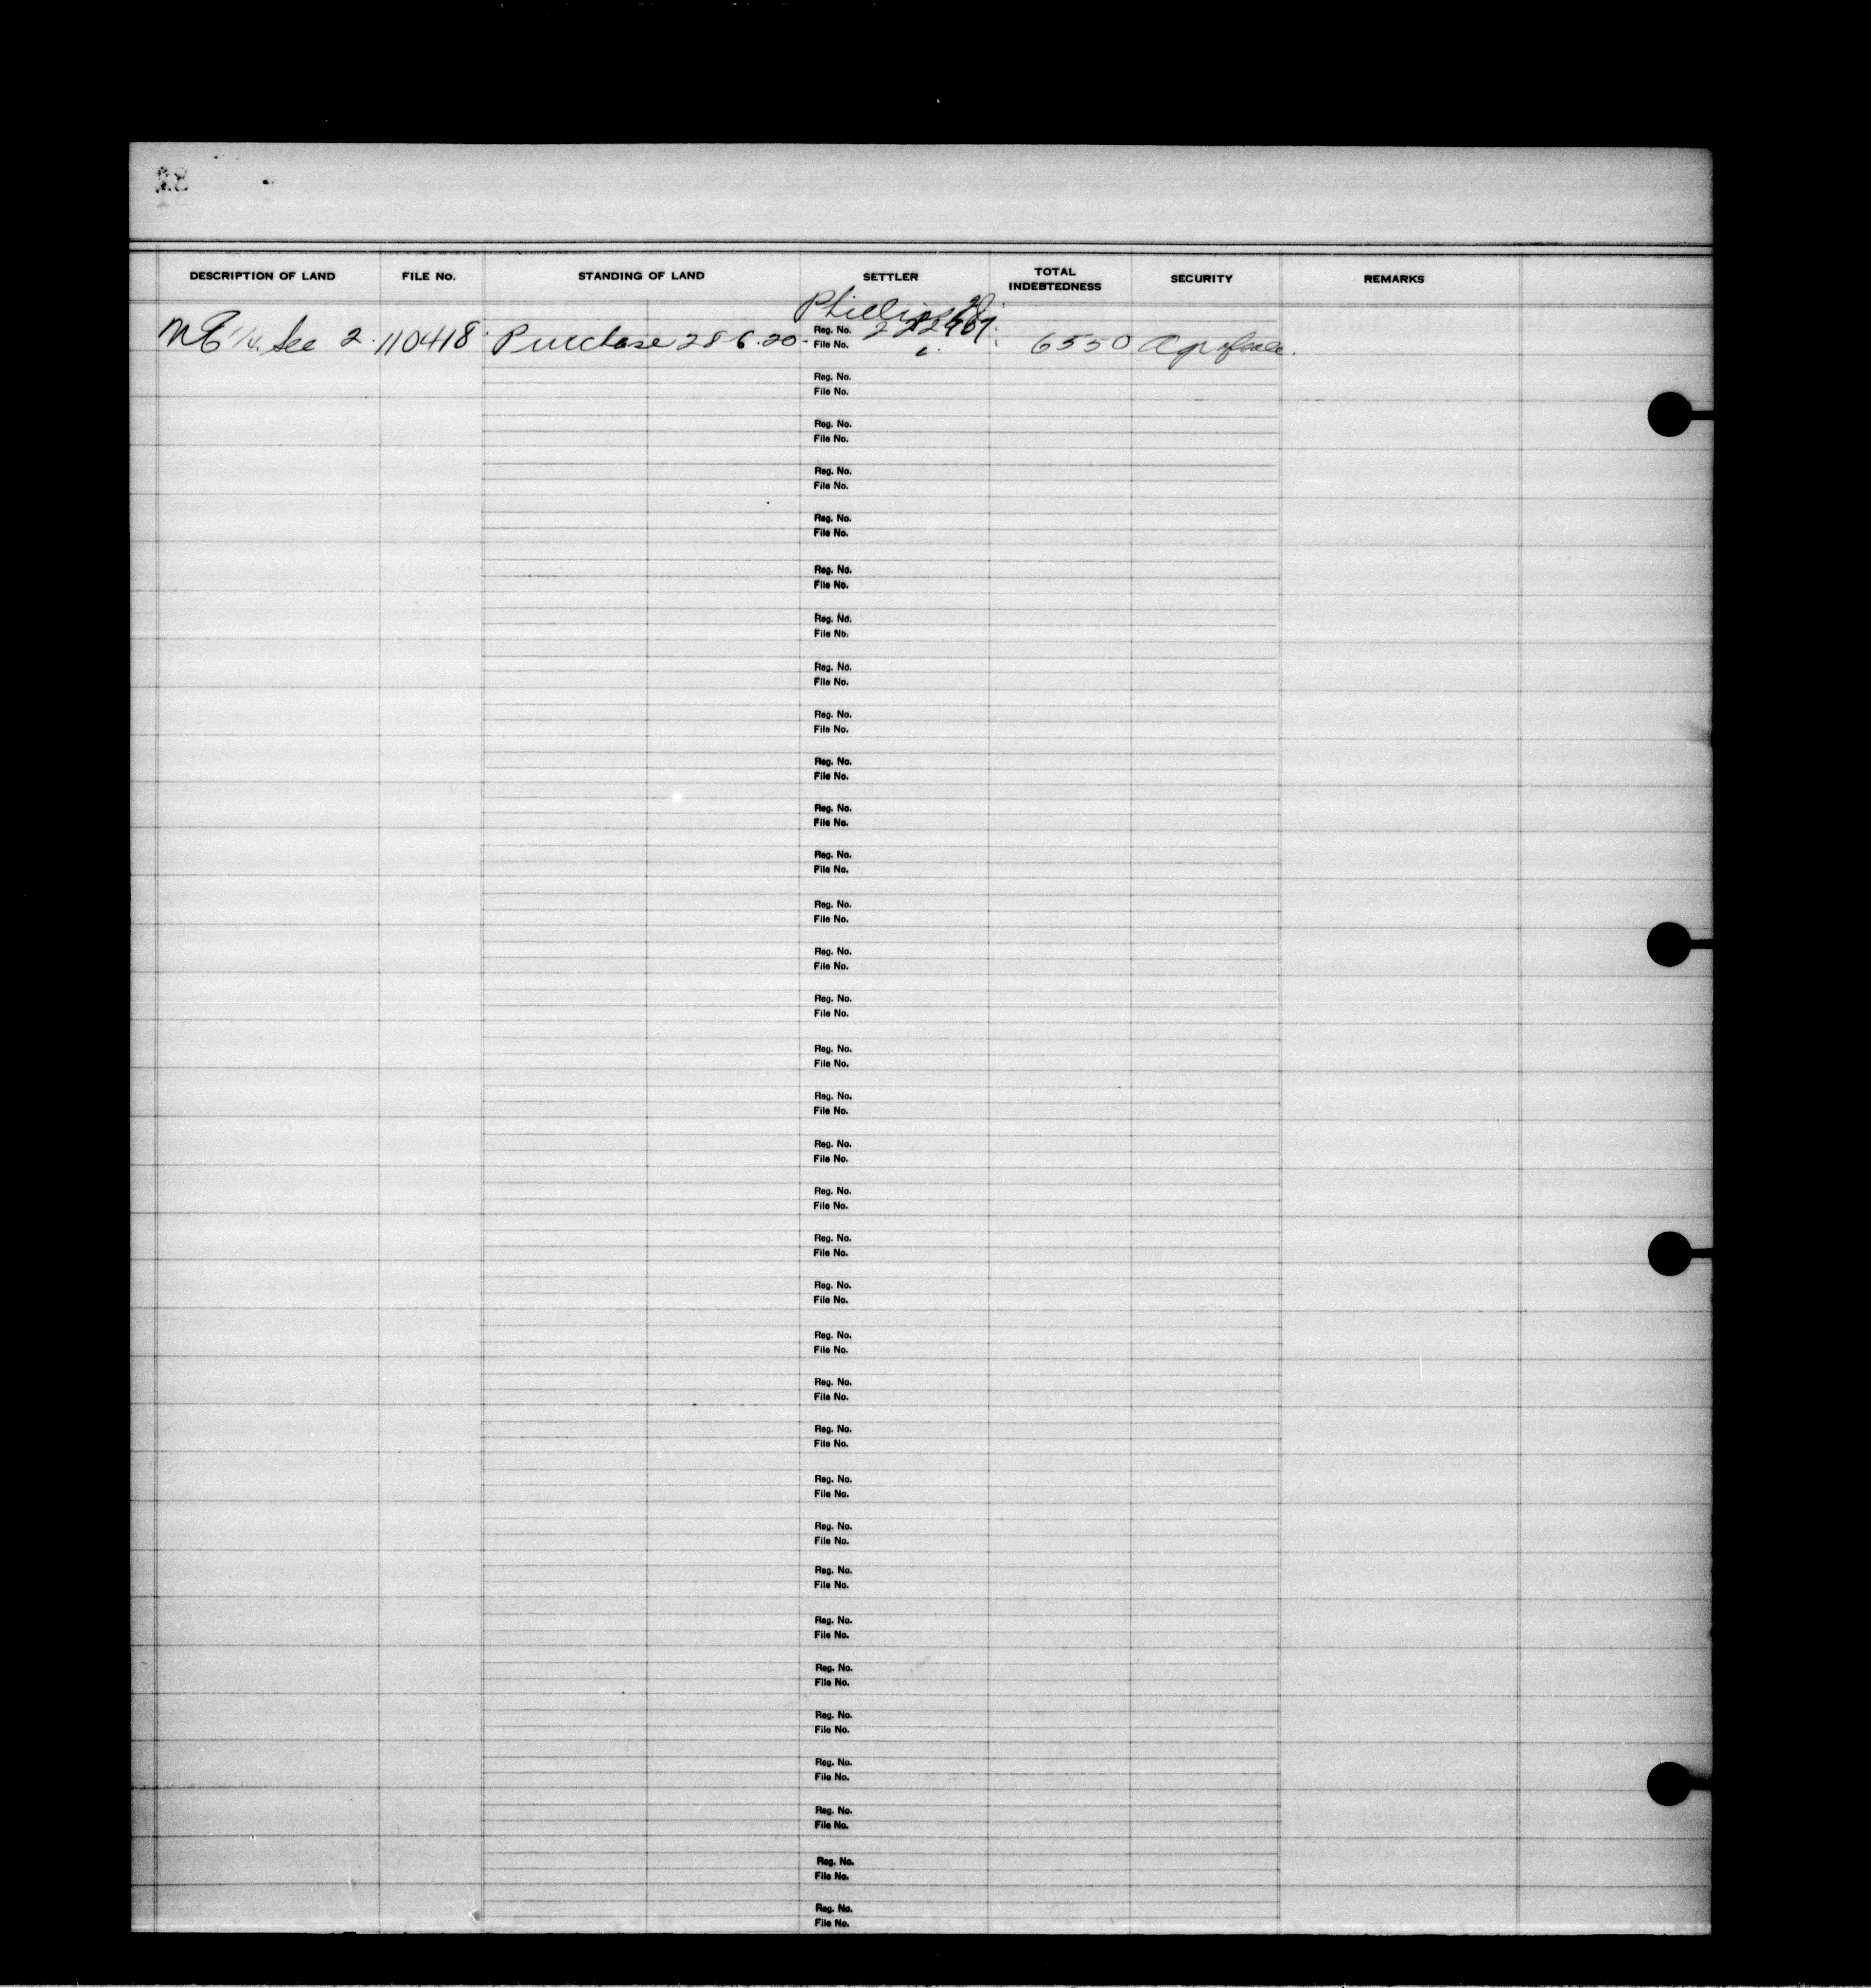 DESCRIPTION OF LAND FILE No. STANDING OF LAND SETTLER TOTAL INDEBTEDNESS SECURITY REMARKS
NE 1/4 Sec 2 110418 Purchase 28 6.20 Reg. No. 6550 Agr of sale.
File No.
Reg. No.
File No.
Reg. No.
File No.
Reg. No.
File No.
Reg. No.
File No.
Reg. No.
File No.
Reg. No.
File No.
Reg. No.
File No.
Reg. No.
File No.
Reg. No.
File No.
Reg. No.
File No.
Reg. No.
File No.
Reg. No.
File No.
Reg. No.
File No.
Reg. No.
File No.
Reg. No.
File No.
Reg. No.
File No.
Reg. No.
File No.
Reg. No.
File No.
Reg. No.
File No.
Reg. No.
File No.
Reg. No.
File No.
Reg. No.
File No.
Reg. No.
File No.
Reg. No.
File No.
Reg. No.
File No.
Reg. No.
File No.
Reg. No.
File No.
Reg. No.
File No.
Reg. No.
File No.
Reg. No.
File No.
Reg. No.
File No.
Reg. No.
File No.
Reg. No.
File No.